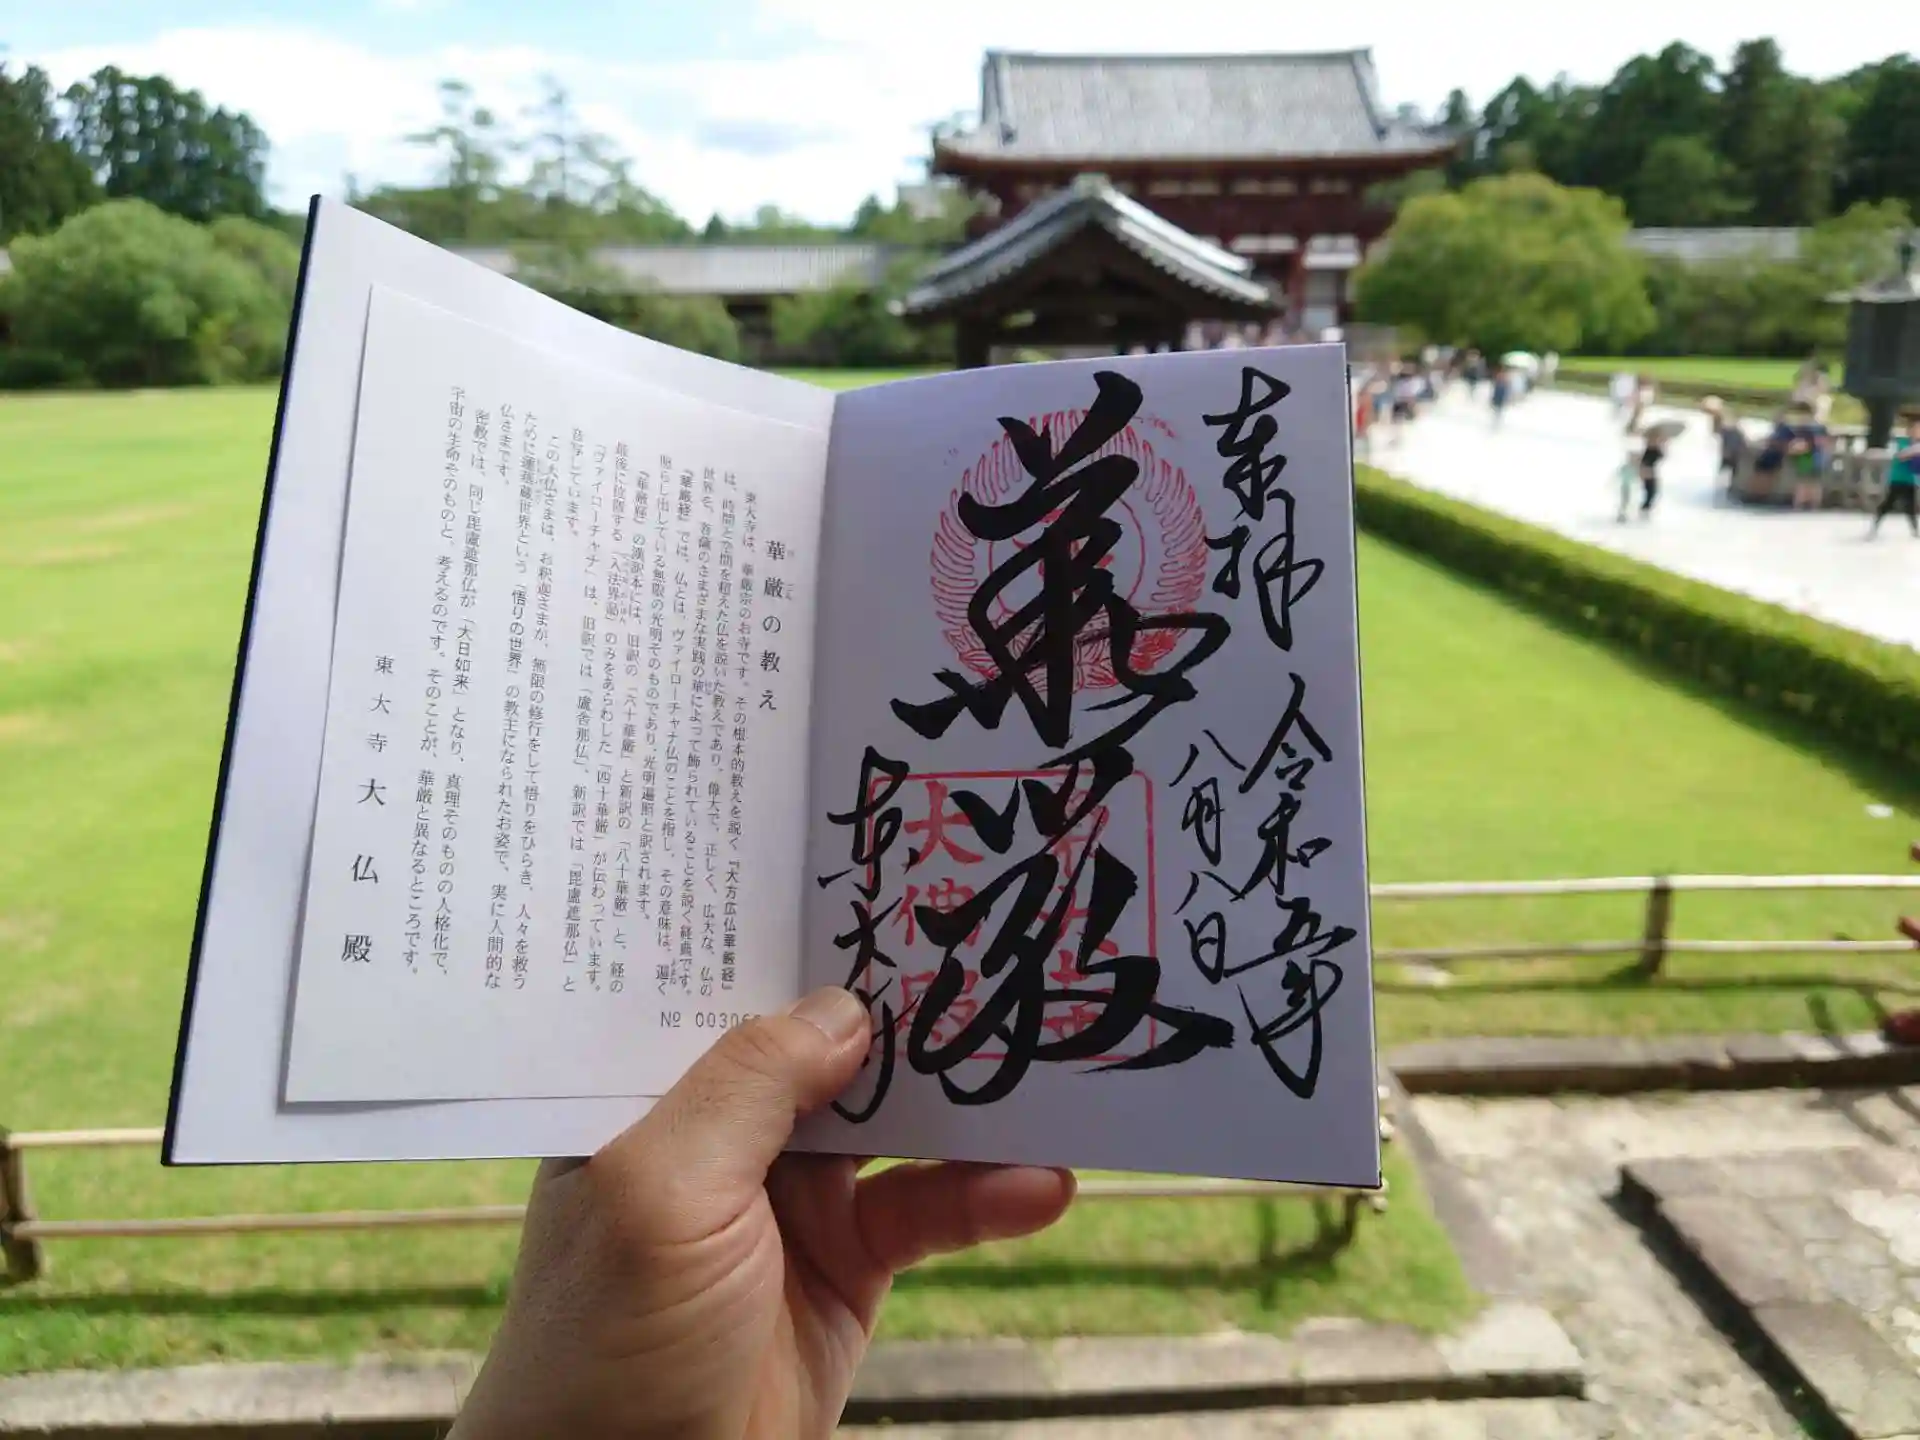 奉拝
令和五年
八月八日
華厳
東大寺
大仏殿
華厳の教え
東大寺は、華厳宗のお寺です。その根本的教えを説く『大方広仏華厳経』
は、時間と空間を超えた仏を説いた教えであり、偉大で、正しく、広大な、仏の
世界を、菩薩のさまざまな実践の華によって飾られていることを説く経典です。
『華厳経』では、仏とは、ヴァイローチャナ仏のことを指し、その意味は、遍く
照らし出している無限の光明そのものであり、光明遍照と訳されます。
『華厳経』の漢訳本には、旧訳の「六十華厳」と新訳の「八十華厳」と、経の
最後に位置する「入法界品」のみをあらわした「四十華厳」が伝わっています。
「ヴァイローチャナ」は、旧訳では「盧舎那仏」、新訳では「毘盧遮那仏」と
音写しています。
この大仏さまは、お釈迦さまが、無限の修行をして悟りをひらき、人々を救う
ために蓮華蔵世界という「悟りの世界」の教主になられたお姿で、実に人間的な
仏さまです。
密教では、同じ毘盧遮那仏が「大日如来」となり、真理そのものの人格化で、
宇宙の生命そのものと、考えるのです。そのことが、華厳と異なるところです。
東大寺大仏殿
№ 00306